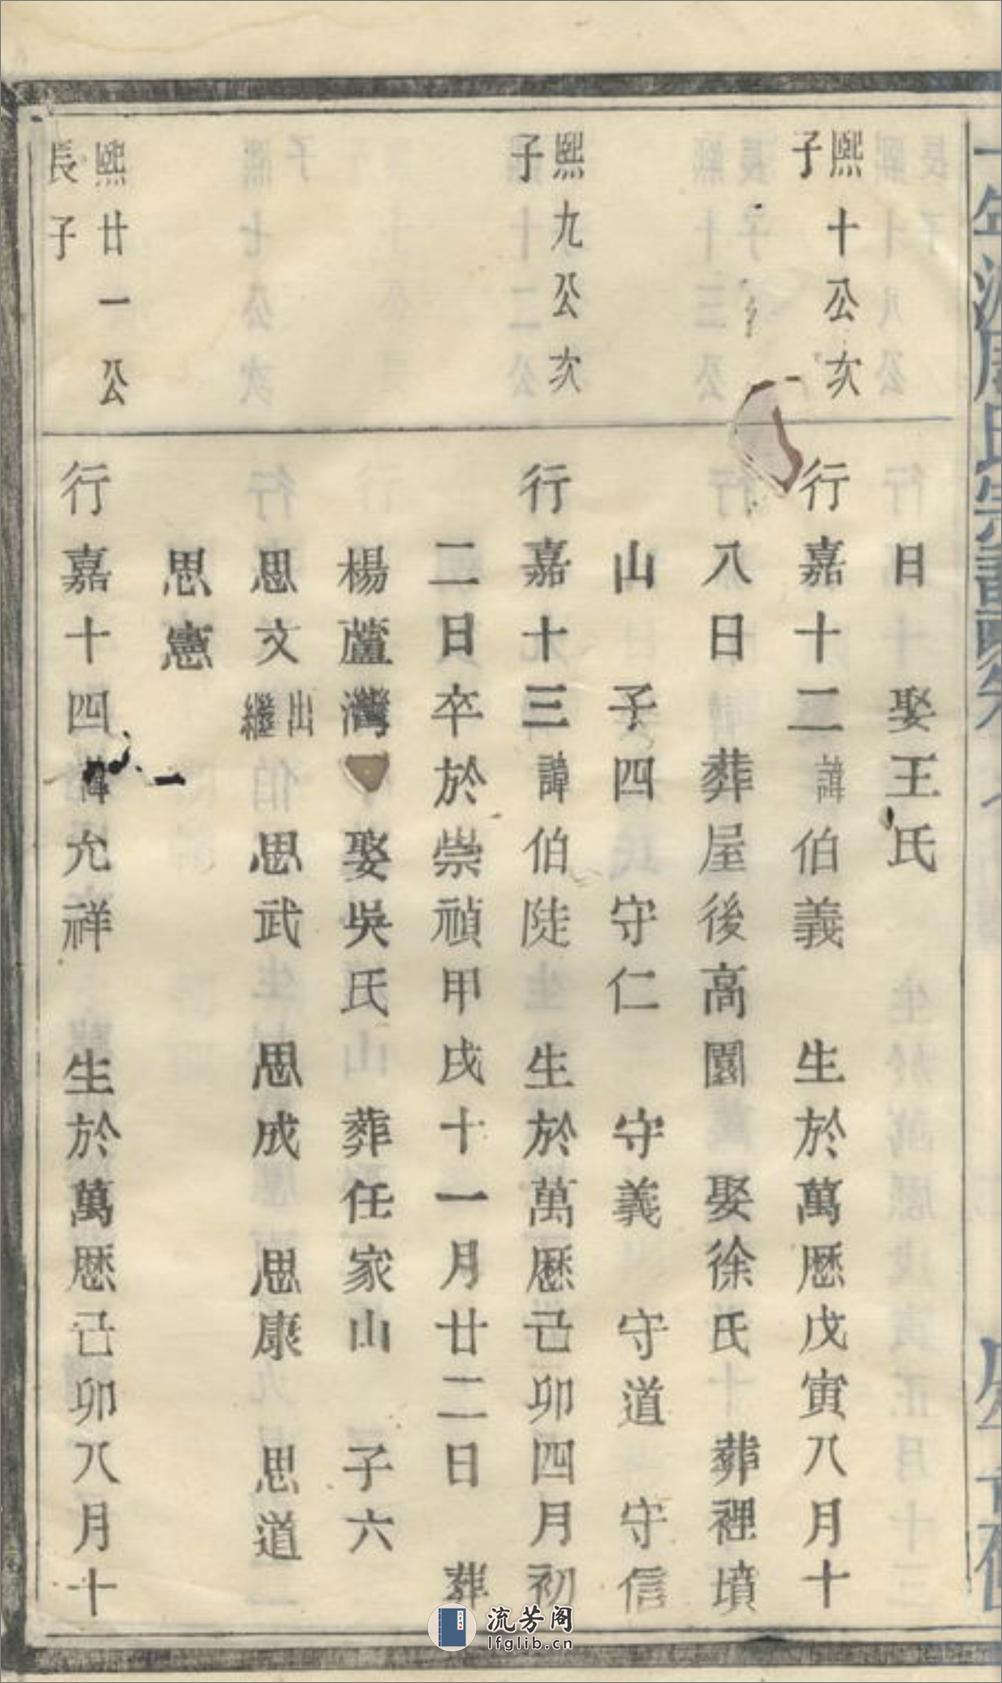 日　娶王氏
熙十公次
子
行嘉十二諱伯義　生於萬歷戊寅八月十
八日　葬屋後高園　娶徐氏　葬裡墳
山　子四　守仁　守義　守道　守信
熙九公次
子
行嘉十三諱伯陡　生於萬歷己卯四月初
二日卒於崇禎甲戌十一月廿二日　葬
楊蘆灣　娶吳氏　葬任家山　子六
思文出繼伯　思武　思成　思康　思道
思憲
熙廿一公
長子
行嘉十四諱允祥　生於萬歷己卯八月十
流芳阁
lfglib.cn